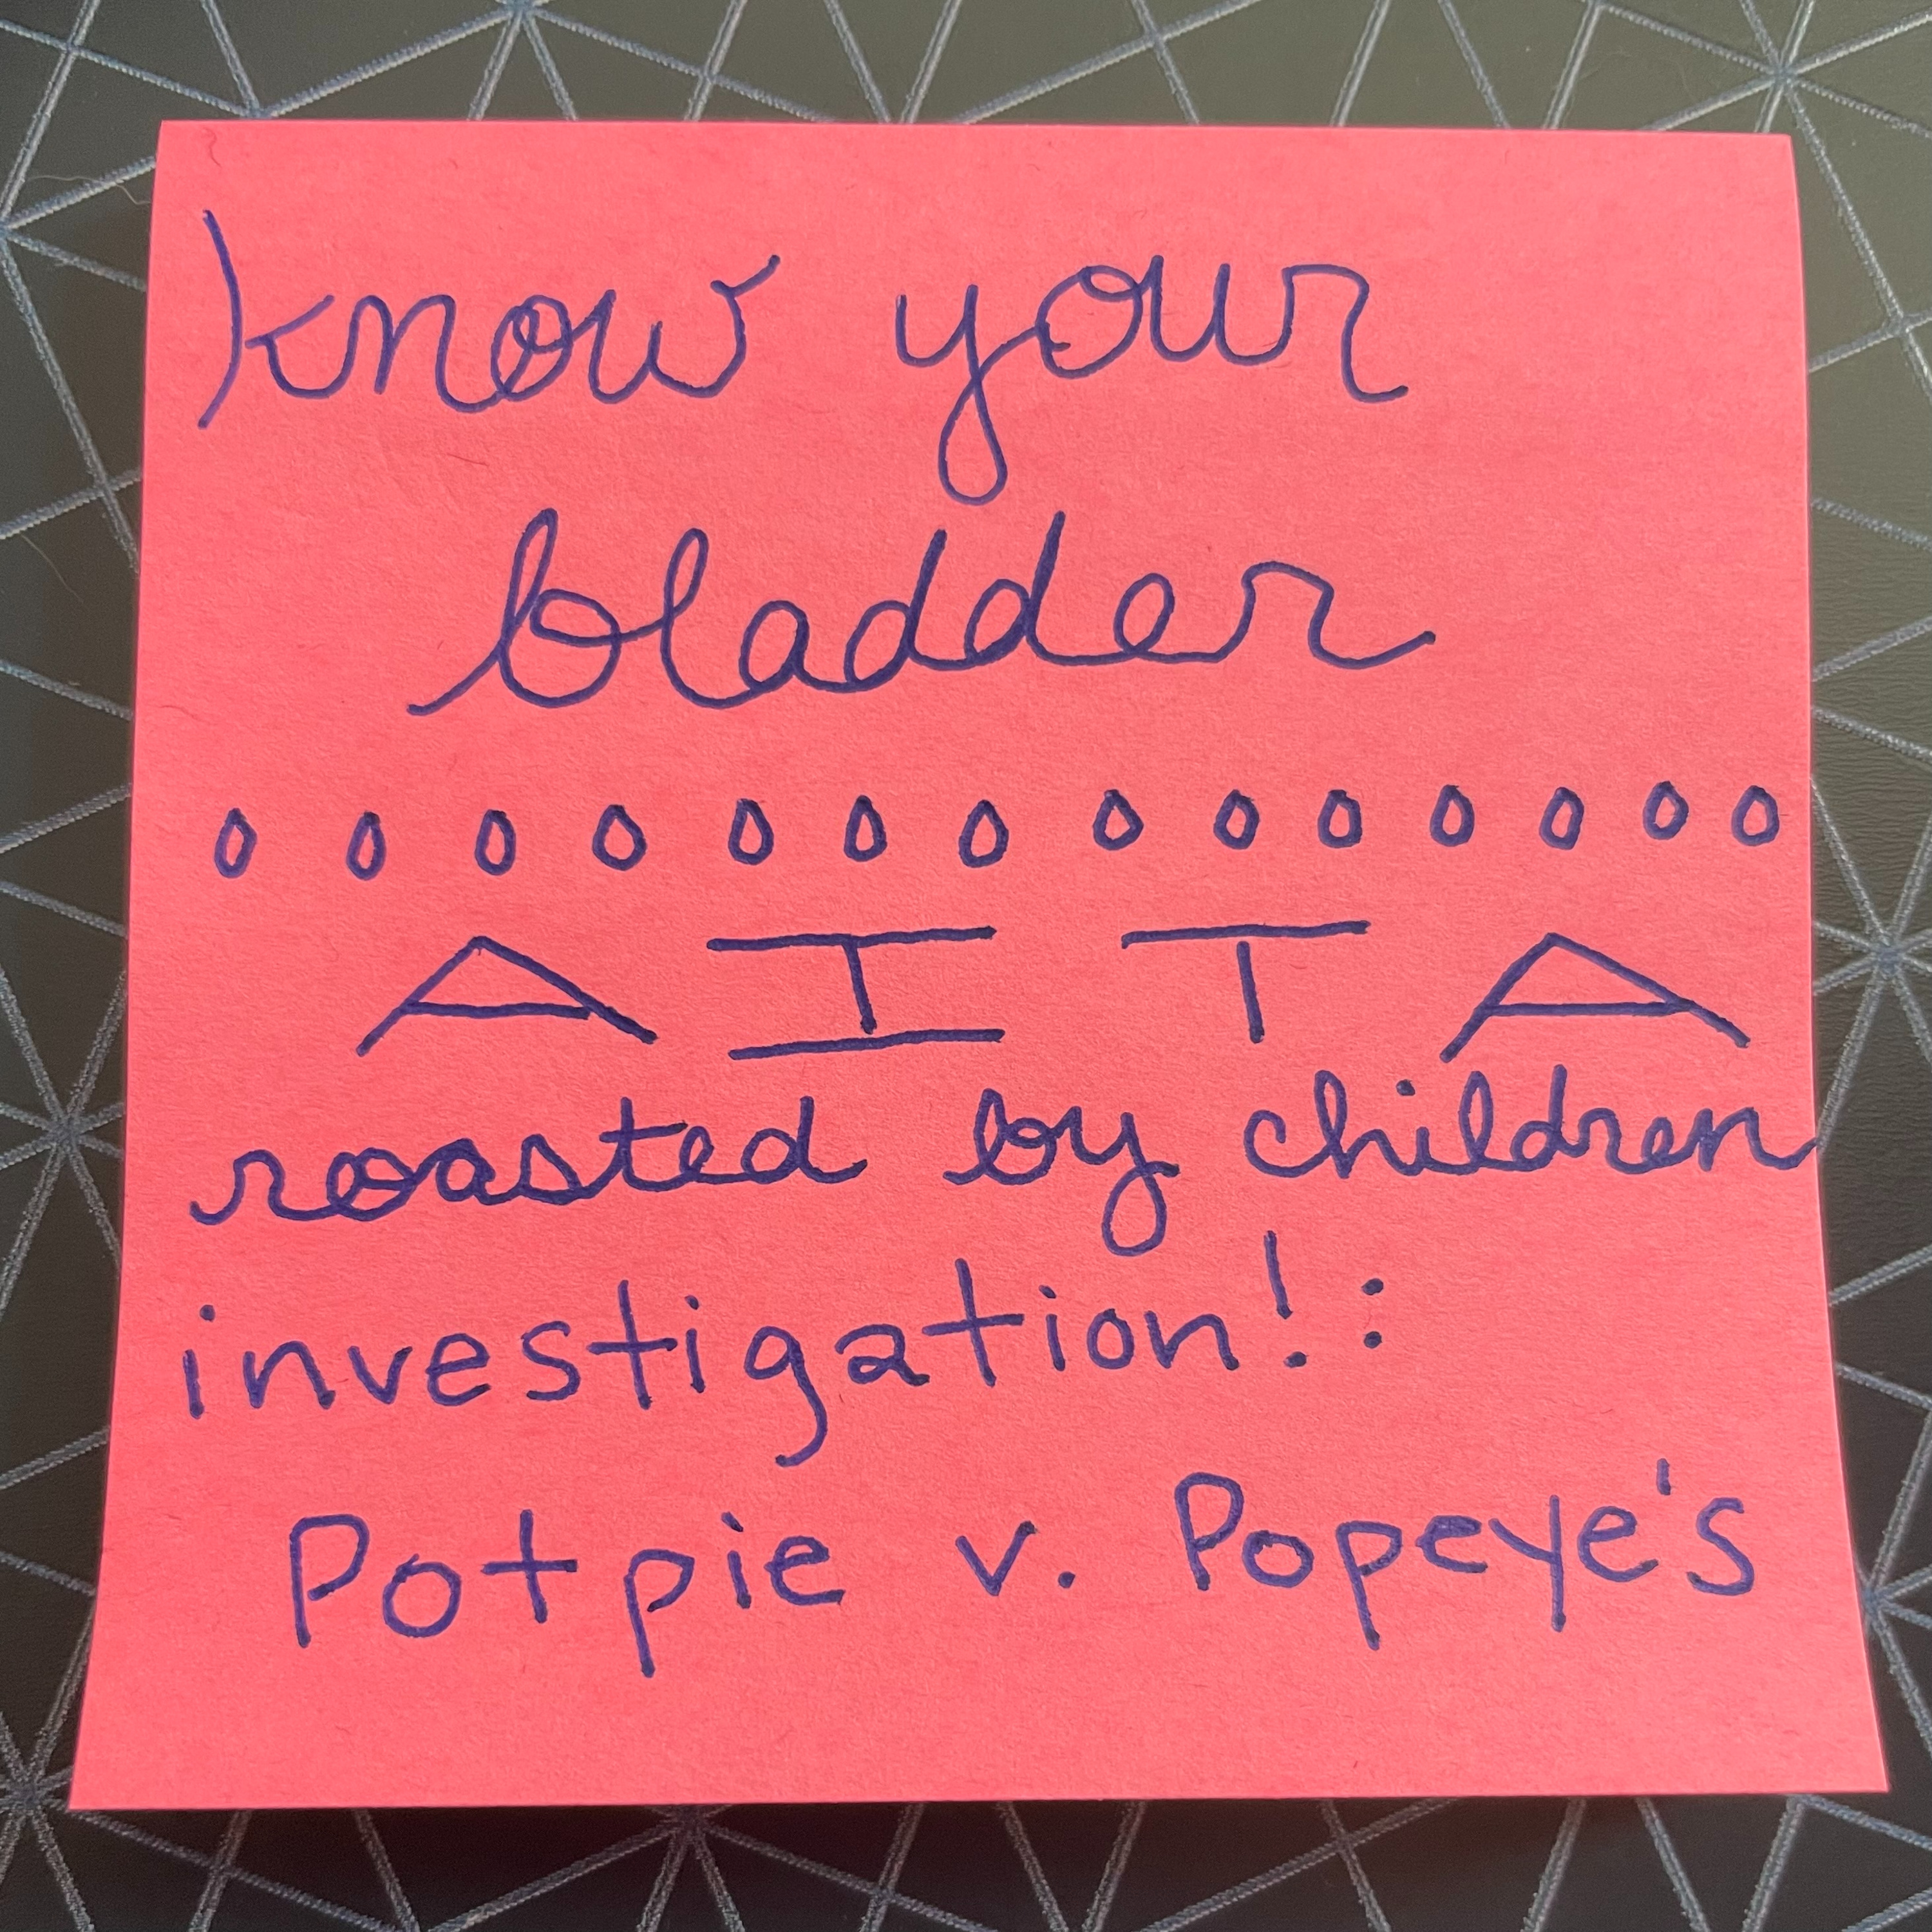 know your
bladder
0 0 0 0 0 0 0 0 0 0 0 0 0 0
AITA
roasted by children
investigation!:
Potpie v. Popeye's